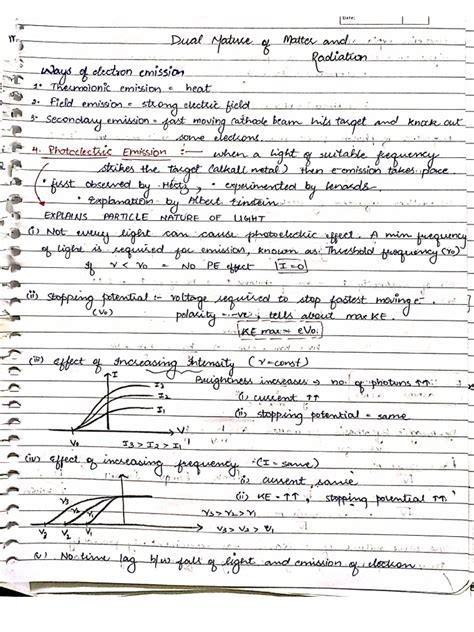 Date:
Dual Nature of Matter and
Radiation
Ways of electron emission
1. Thermionic emission = heat
2. Field emission = strong electric field
3. Secondary emission = fast moving cathode beam hits target and knock out
some electrons.
4. Photoelectric Emission :— when a light of suitable frequency
strikes the target (alkali metal) then e- emission takes place
• first observed by Hertz, • experimented by Lenards.
• Explanation by Albert Einstein
EXPLAINS PARTICLE NATURE OF LIGHT
(i) Not every light can cause photoelectric effect. A min frequency
of light is required for emission, known as Threshold frequency (ν₀)
If ν < ν₀ = NO PE effect I=0
(ii) Stopping potential :- voltage required to stop fastest moving e-.
(V₀) polarity = -ve, tells about max KE.
KE max = eV₀
(iii) effect of Increasing Intensity (ν=const)
Brightness increases → no. of photons ↑↑
I
I3
I2
I1
(i) current ↑↑
(ii) stopping potential = same
V₀
I3 > I2 > I1
(iv) effect of increasing frequency (I = same)
(i) current same
(ii) KE = ↑↑, stopping potential ↑↑
ν3 ν2 ν1
ν3 > ν2 > ν1
V3 V2 V1
V3 > V2 > V1
v) No time lag b/w falls of light and emission of electron